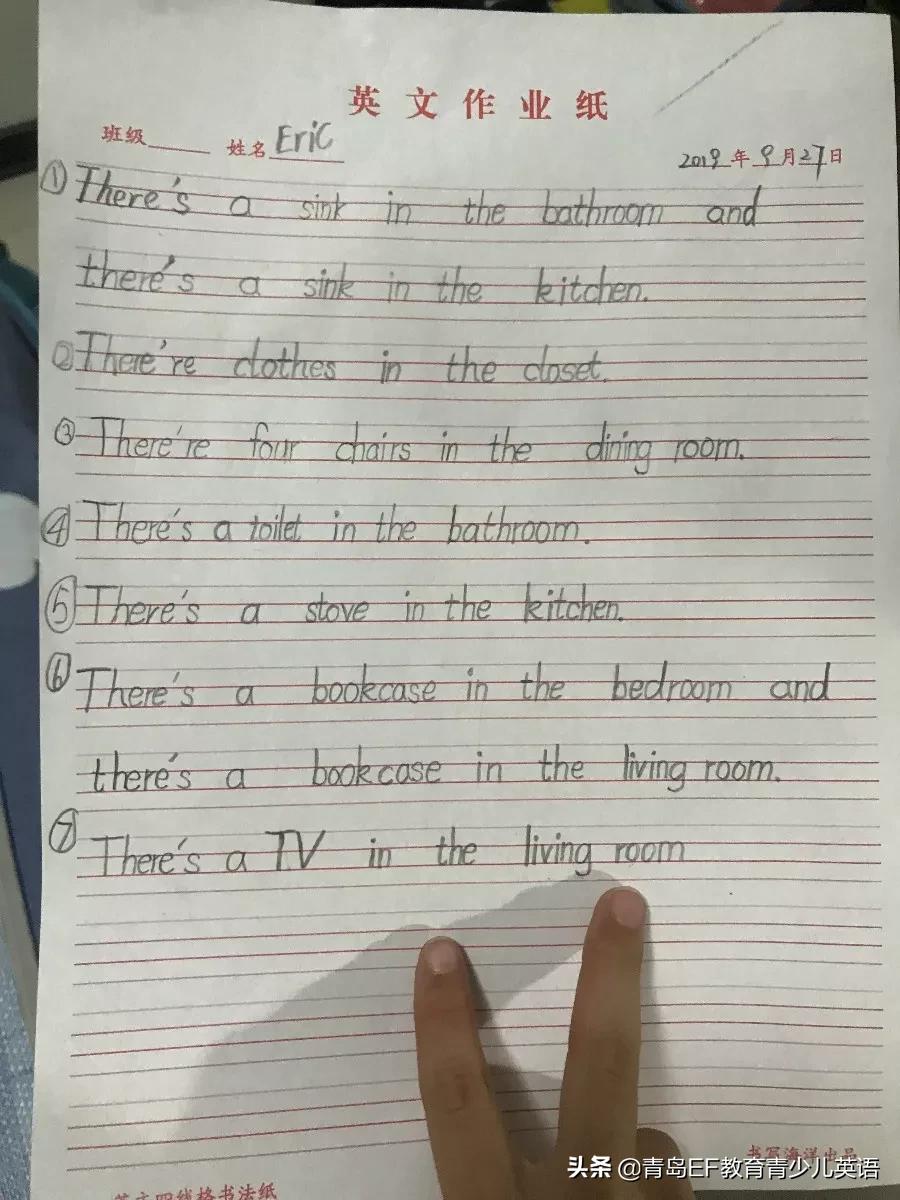 英文作业纸
班级 姓名 Eric
2019年9月27日
① There's a sink in the bathroom and
there's a sink in the kitchen.
② There're clothes in the closet.
③ There're four chairs in the dining room.
④ There's a toilet in the bathroom.
⑤ There's a stove in the kitchen.
⑥ There's a bookcase in the bedroom and
there's a bookcase in the living room.
⑦ There's a TV in the living room
书写海洋出品
英文四线格书法纸
头条 @青岛EF教育青少儿英语